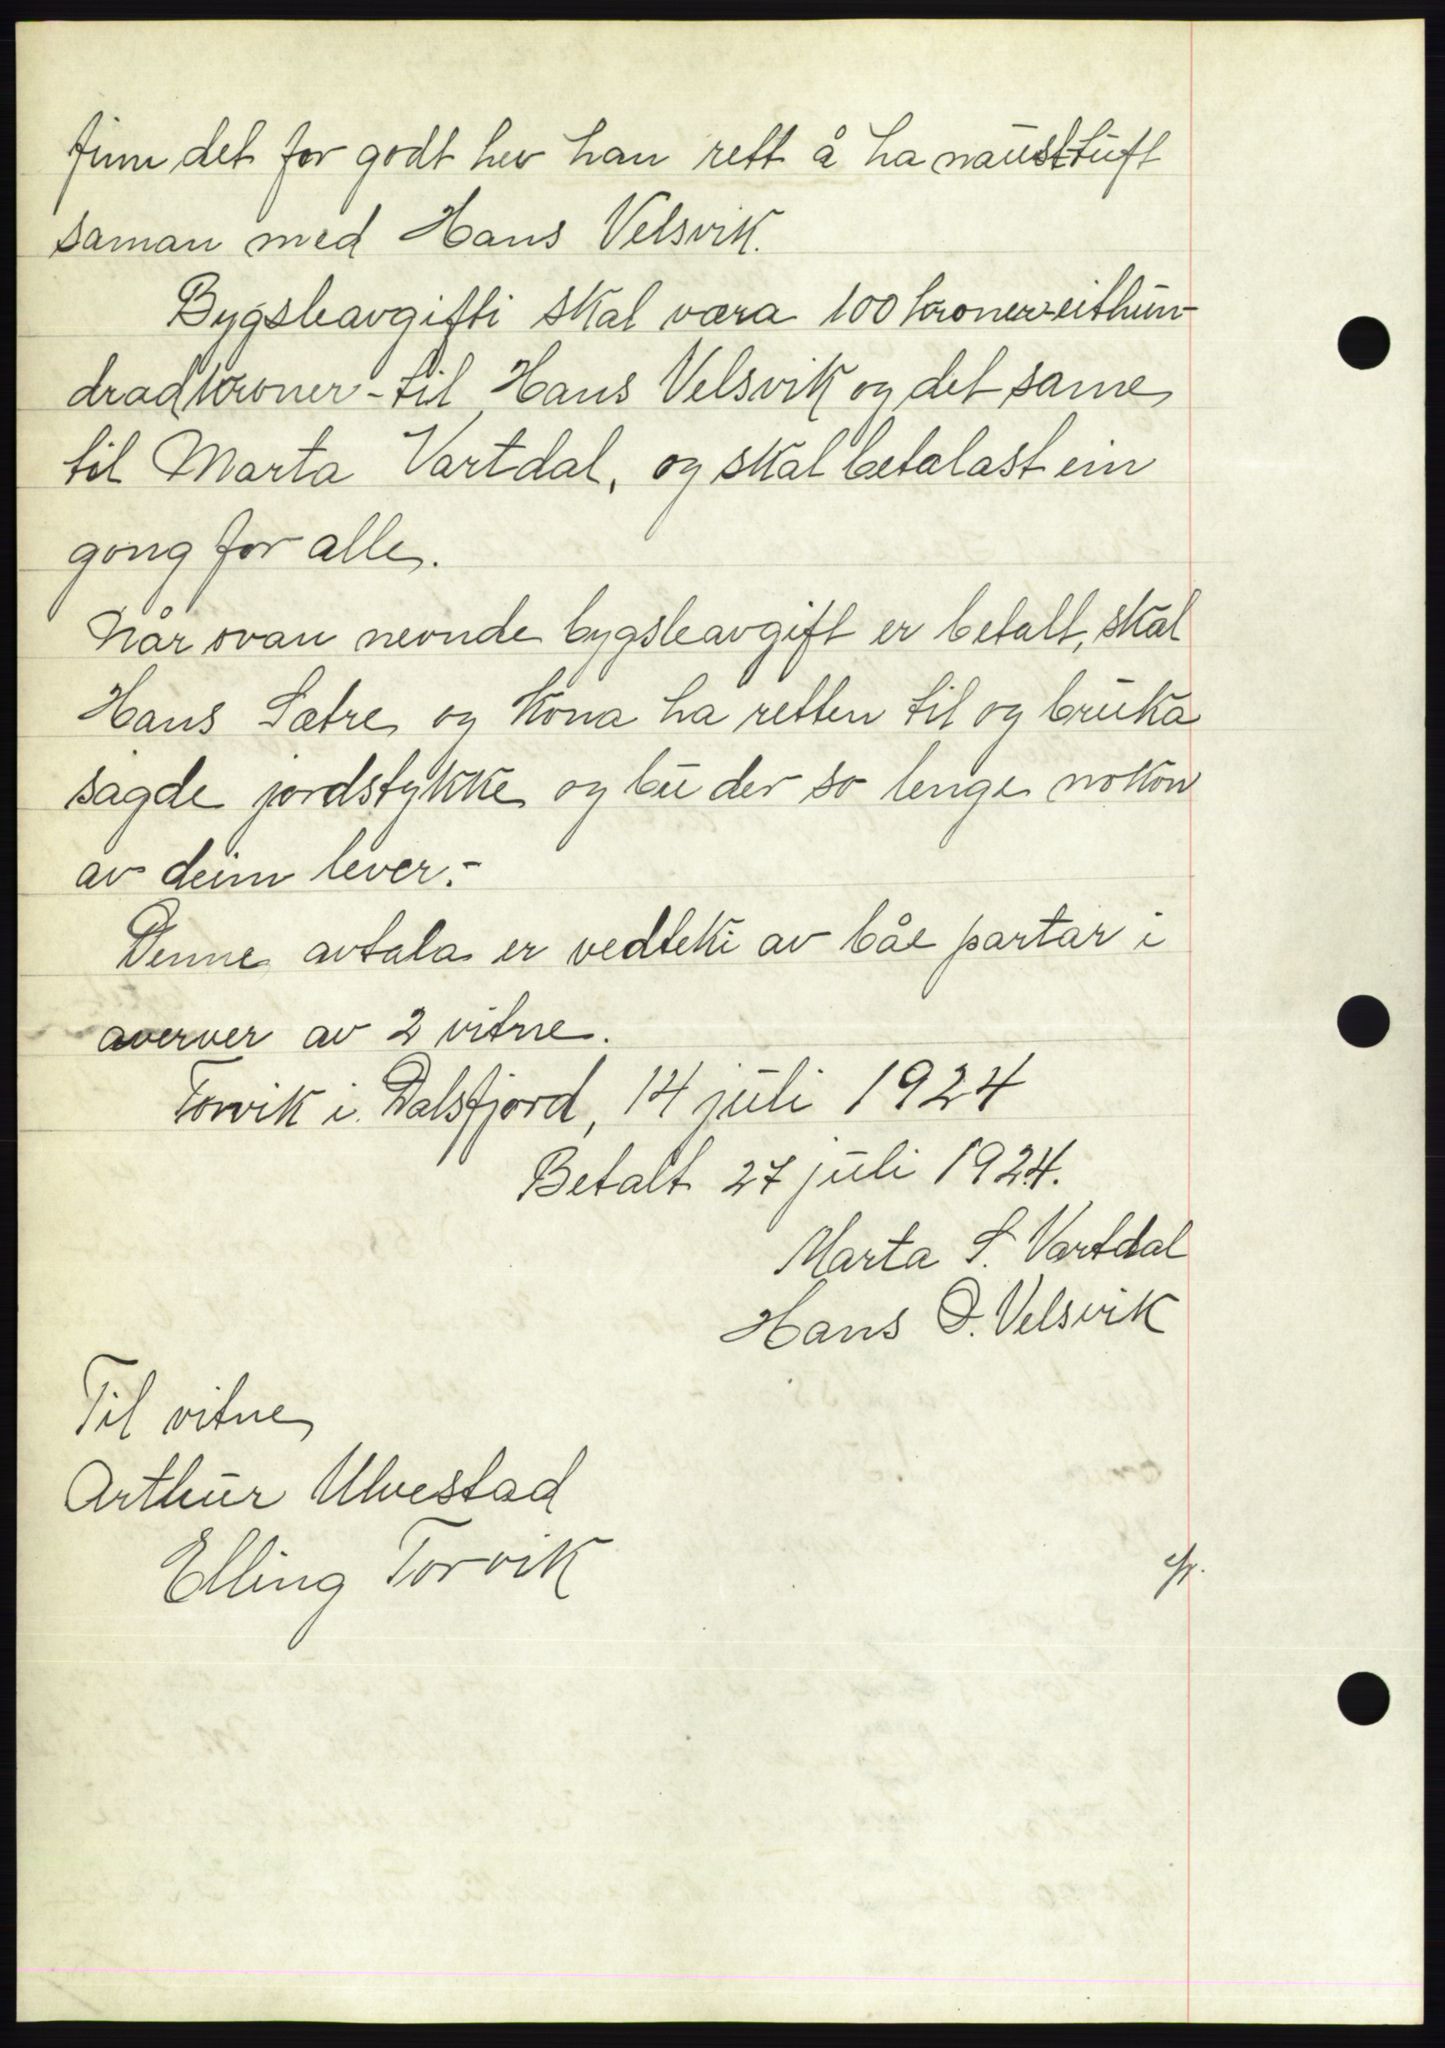 finn det for godt hev han rett å ha nausttuft
saman med Hans Velsvik.
Bygsleavgifti skal vera 100 kroner-eithun-
dradkroner - til Hans Velsvik og det same
til Marta Vartdal, og skal betalast ein
gong for alle.
Når ovan nevnde bygsleavgift er betalt, skal
Hans Sætre og kona ha retten til og bruka
sagde jordstykke og bu der so lenge nokon
av deim lever.-
Denne avtala er vedteki av båe partar i
averver av 2 vitne.
Torvik i Dalsfjord, 14 juli 1924
Betalt 27 juli 1924.
Marta S. Vartdal
Hans D. Velsvik
Til vitne
Arthur Ulvestad
Elling Torvik